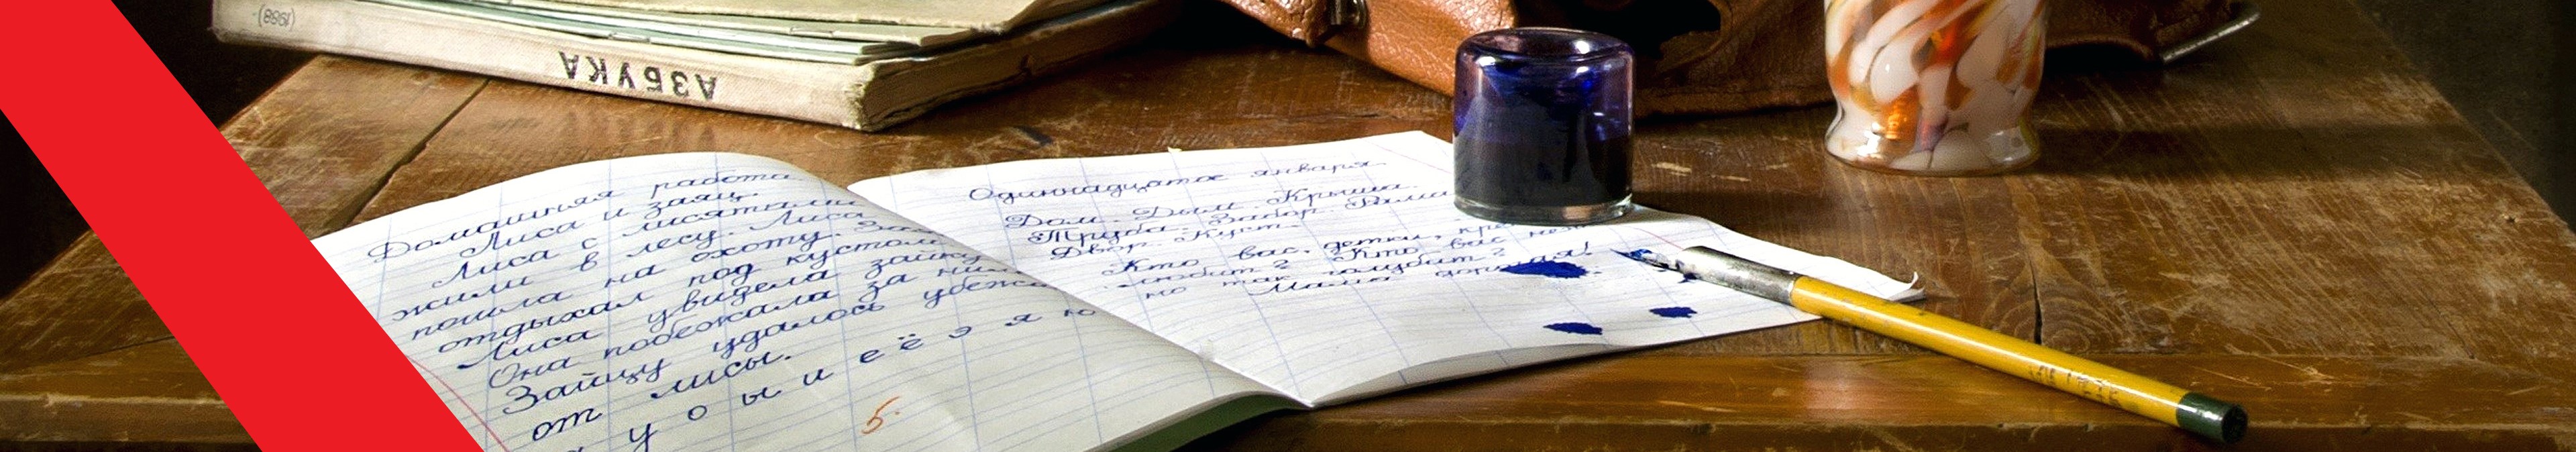 (1988)
АЗБУКА
Домашняя работа.
Лиса и заяц.
Лиса с лисятами
жили в лесу. Лиса
пошла на охоту. Заяц
отдыхал под кустом.
Лиса увидела зайку.
Она побежала за ним.
Зайцу удалось убежать
от лисы.
а у о ы и е ё э я ю
5
Одиннадцатое января.
Дом. Дым. Крыша.
Труба. Забор.
Двор. Куст.
Кто вас, детки,
любит? Кто вас
но так голубит?
Мама дорогая!